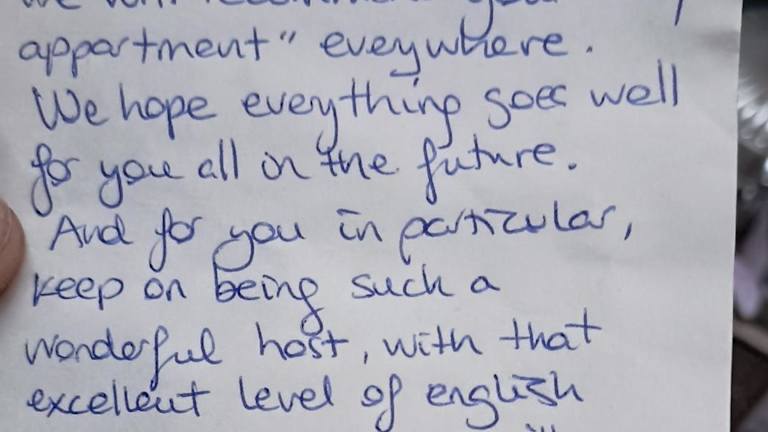 appartment" eveywhere.
We hope everything goes well
for you all in the future.
And for you in particular,
keep on being such a
wonderful host, with that
excellent level of english